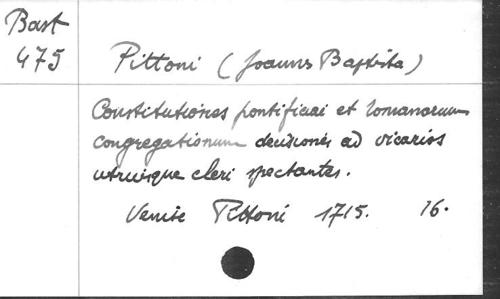 Bast
475
Pittoni (Joannes Baptista)
Constitutiones pontificiae et romanorum
congregationum decisiones ad vicarios
utriusque cleri spectantes.
Venise Pittoni 1715. 16.